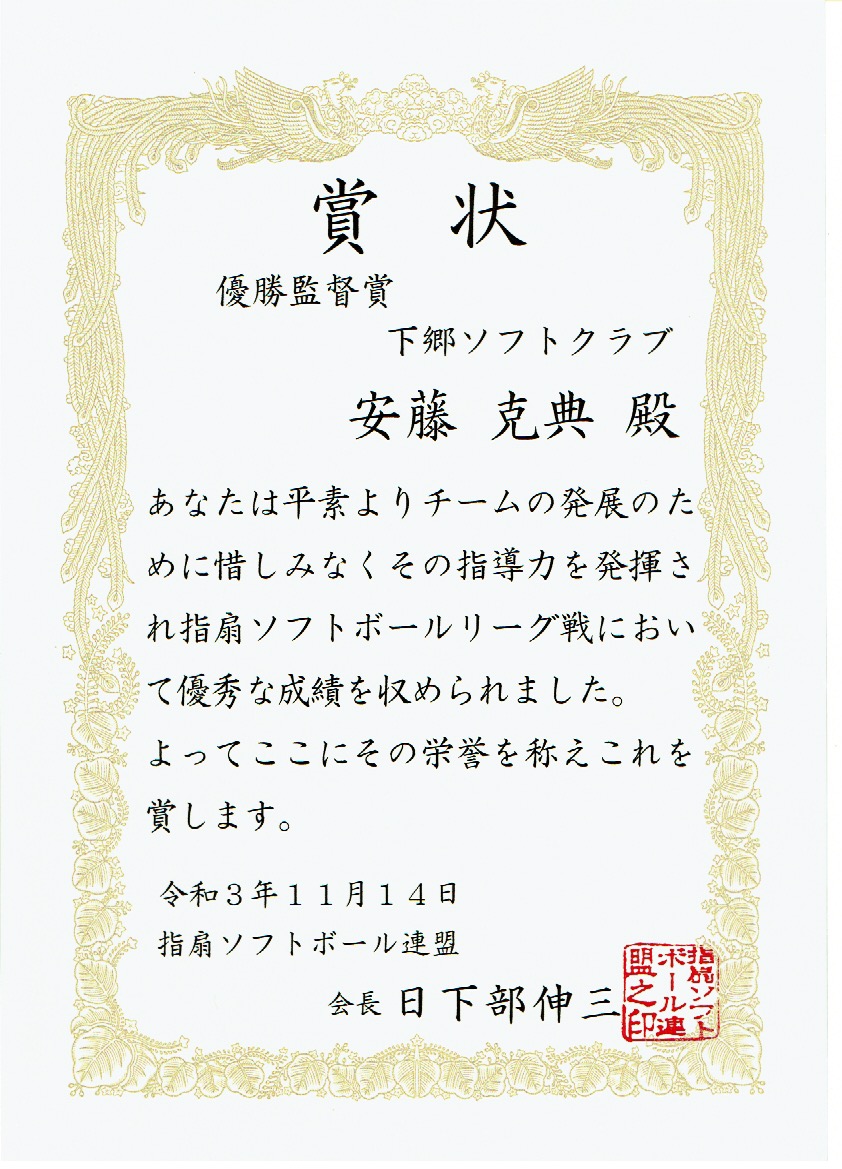 賞 状
優勝監督賞
下郷ソフトクラブ
安藤 克典 殿
あなたは平素よりチームの発展のた
めに惜しみなくその指導力を発揮さ
れ指扇ソフトボールリーグ戦におい
て優秀な成績を収められました。
よってここにその栄誉を称えこれを
賞します。
令和３年１１月１４日
指扇ソフトボール連盟
会長 日下部伸三
指扇ソフト
ボール連
盟之印